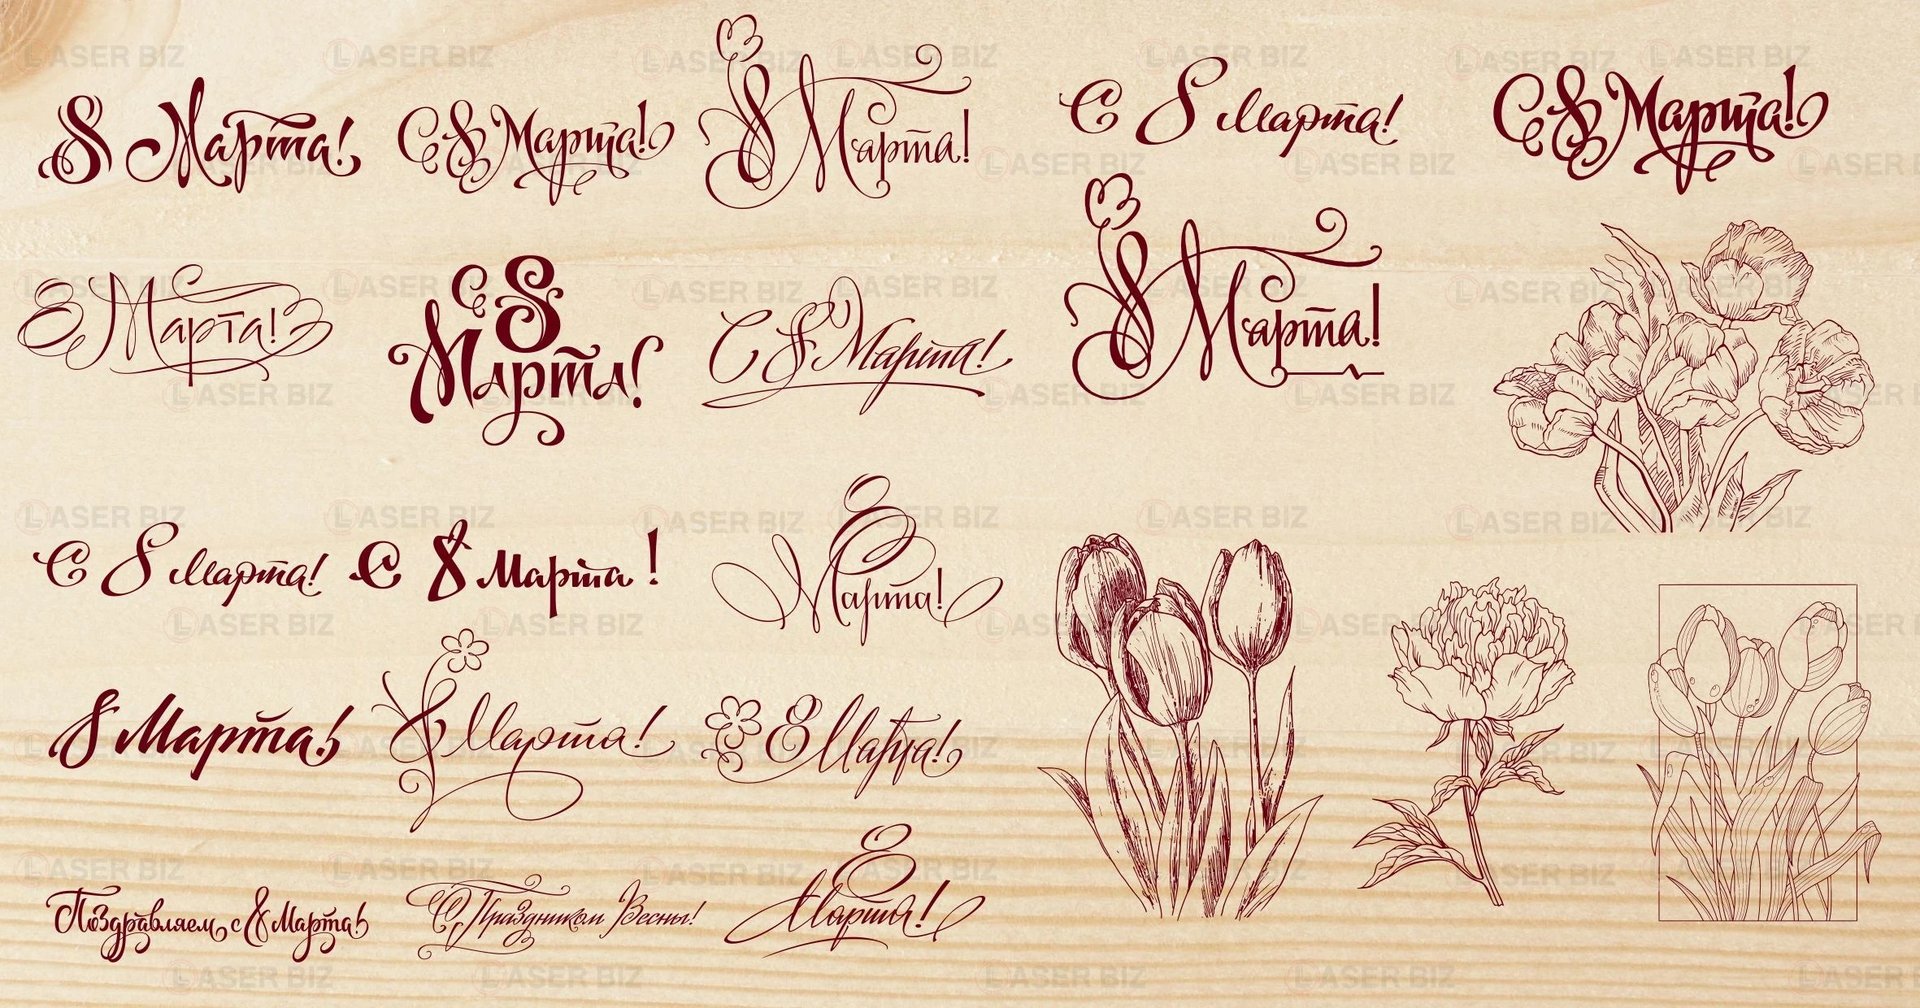 8 Марта!
С 8 Марта!
8 Марта!
С 8 Марта!
С 8 Марта!
8 Марта!
С 8
Марта!
С 8 Марта!
8 Марта!
С 8 Марта!
С 8 Марта!
8
Марта!
8 Марта!
8 Марта!
8 Марта!
Поздравляем с 8 Марта!
С Праздником Весны!
8
Марта!
LASER BIZ